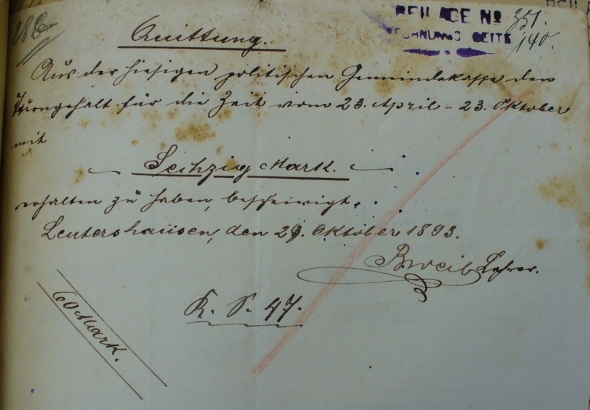 BEILAGE № 351.
RECHNUNGS SEITE 140.
Quittung.
Aus der hiesigen politischen Gemeindekasse den
Turngehalt für die Zeit vom 23. April - 23. Oktober
mit
Sechzig Mark.
erhalten zu haben, bescheinigt.
Leutershausen, den 29. Oktober 1893.
Lehrer.
K. S. 47.
60 Mark.